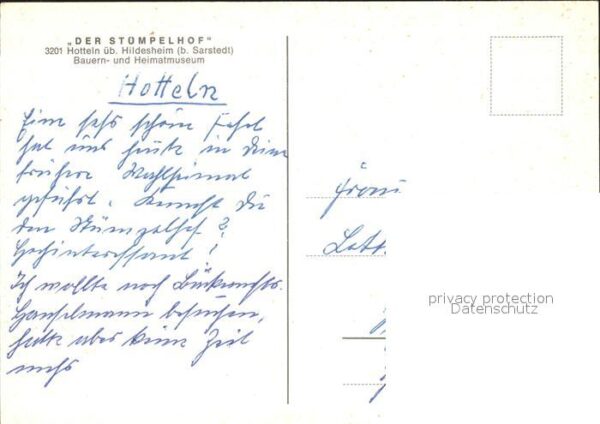 „DER STÜMPELHOF"
3201 Hotteln üb. Hildesheim (b. Sarstedt)
Bauern- und Heimatmuseum
Hotteln
Eine sehr schöne Fahrt
hat uns heute in Deine
frühere Wahlheimat
geführt. Kennst Du
den Stümpelhof?
Hochinteressant!
Ich wollte noch
Hanselmann besuchen,
hatte aber keine Zeit
mehr
Frau
Lott
privacy protection
Datenschutz